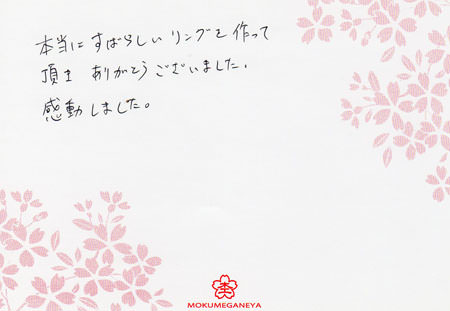 本当にすばらしいリングを作って
頂き ありがとうございました。
感動しました。
MOKUMEGANEYA